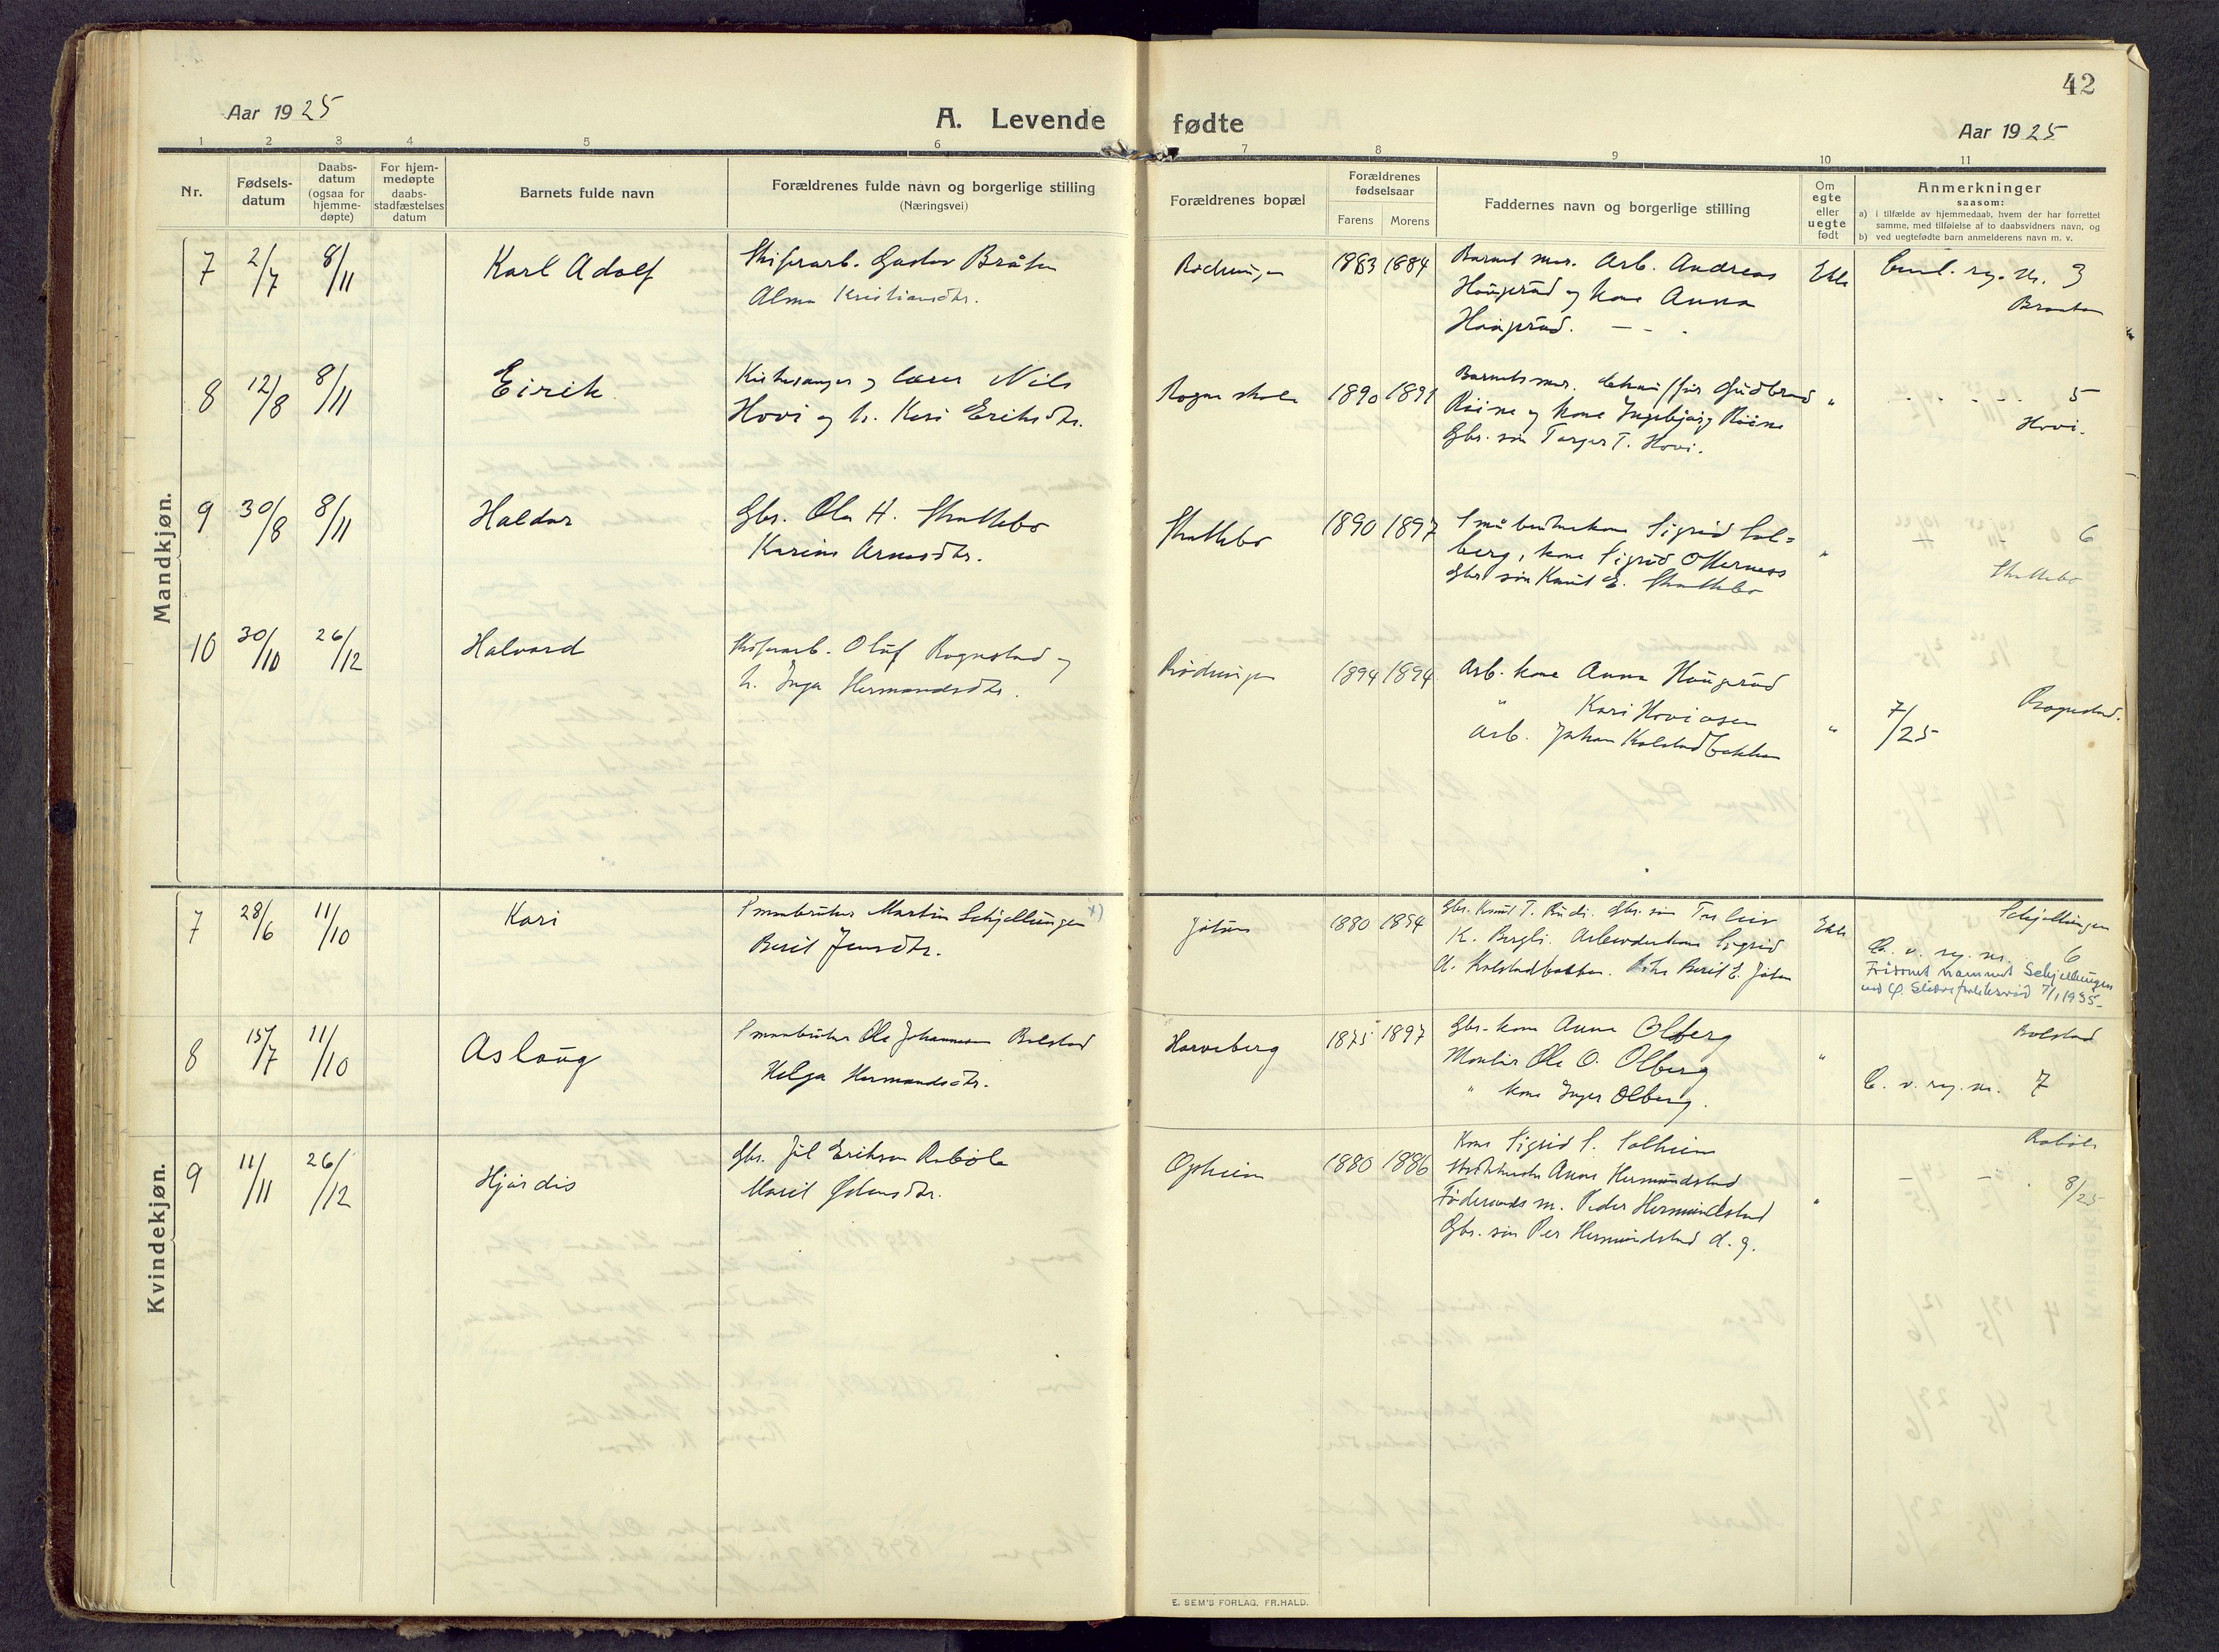 42
Aar 1925
A. Levende fødte
Aar 1925
1 2 3 4 5 6 7 8 9 10 11
Nr.
Fødsels-
datum
Daabs-
datum
(ogsaa for
hjemme-
døpte)
For hjem-
medøpte
daabs-
stadfæstelses
datum
Barnets fulde navn
Forældrenes fulde navn og borgerlige stilling
(Næringsvei)
Forældrenes bopæl
Forældrenes
fødselsaar
Farens Morens
Faddernes navn og borgerlige stilling
Om
egte
eller
uegte
født
Anmerkninger
saasom:
a) i tilfælde av hjemmedaab, hvem der har forrettet
samme, med tilføielse af to daabsvidners navn, og
b) ved uegtefødte barn anmelderens navn m. v.
Mandkjøn.
7 2/7 8/11 Karl Adolf
Skiferarb. Gustav Bråten
Alma Kristiansdtr.
1883 1884
Barnets mor. Arb. Andreas
Haugerud og kone Anna
Haugerud.
Ekte
reg. nr. 3
Braaten
8 12/8 8/11 Eirik
Kirkesanger og lærer Nils
Hovi og h. Kari Eriksdtr.
Rogne skole
1890 1891
Barnets mor. Gudbrand
Röine og kone Ingebjörg Röine
Gbr. søn Torger T. Hovi.
" 5
Hovi.
9 30/8 8/11 Haldor
Gbr. Ola H. Skattebo
Karine Arnesdtr.
Skattebo
1890 1897
Småbrukerkone Sigrid Sol=
berg, kone Sigrid Otterness
Gbr. søn Knut E. Skattebo
" 6
Skattebo
10 30/10 26/12 Halvard
Skiferarb. Oluf Rognstad og
h. Inga Hermandsdtr.
1894 1894
Arb. kone Anna Haugerud
" Kari Hoviosen
Arb. Johan Kolstadbakken
"
7/25
Rognstad.
Kvindekjøn.
7 28/6 11/10 Kari
Smaabruker Martin Schjellungen x)
Berit Jensdtr.
Jotun
1880 1894
Gbr. Knut T. Rudi. Gbr. søn
K. Bergli. Arbeiderkone Sigrid
A. Kolstadbakken. Berit E. Jotun
Ekte
Schjellungen
C. v. reg. nr. 6
namnet Schjellungen
7/1 1935
8 15/7 11/10 Aslaug
Smaabruker Ole Johannesen Bolstad
Helga Hermandsdtr.
Harveberg
1875 1897
Gbr. kone Anna Olberg
Montør Ole O. Olberg
" kone Inger Olberg.
"
Bolstad
C. v. reg. nr. 7
9 11/11 26/12 Hjördis
Gbr. Jul Erikson Robøle
Marit
Opheim
1880 1886
Kone Sigrid S. Solheim
Anne Hermundstad
Föderaads m. Peder Hermundstad
Gbr. søn Per Hermundstad d. y.
"
Robøle
8/25
E. SEM'S FORLAG, FR.HALD.